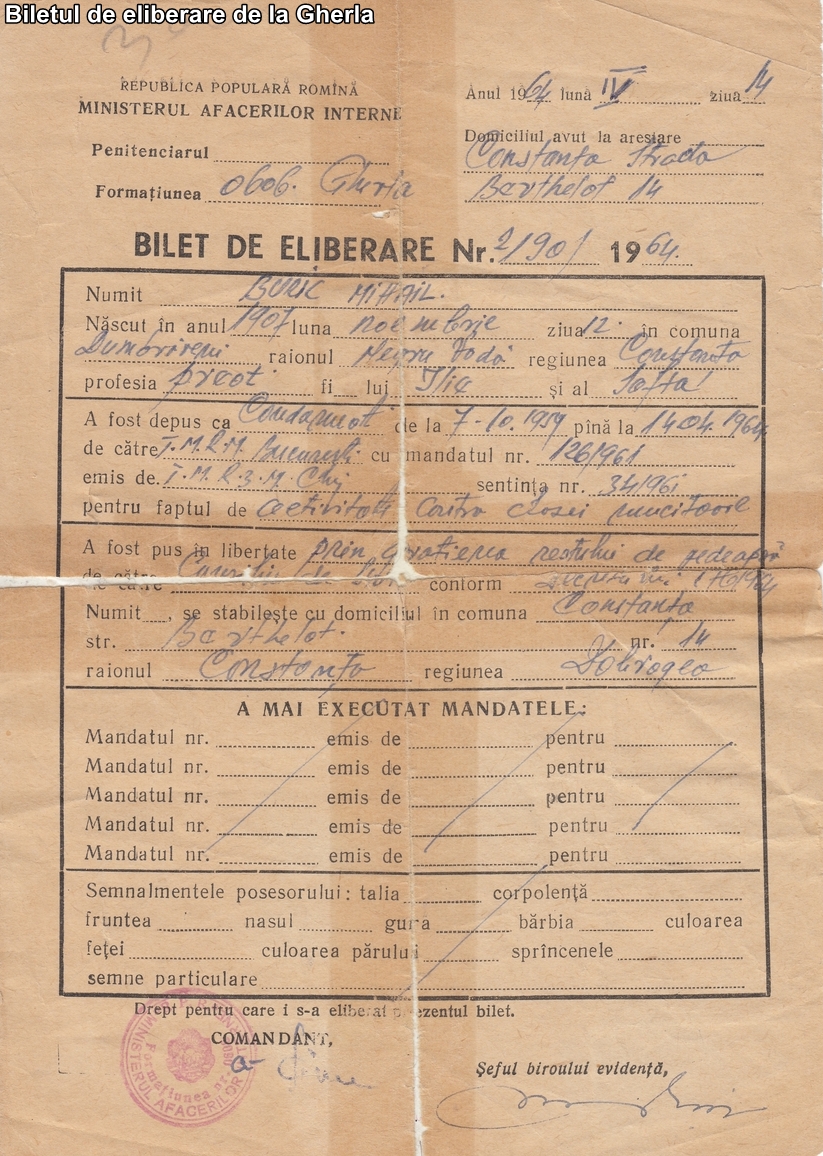 Biletul de eliberare de la Gherla
REPUBLICA POPULARĂ ROMÎNĂ
MINISTERUL AFACERILOR INTERNE
Anul 1964 luna IV ziua 14
Domiciliul avut la arestare
Constanța Strada
Berthelot 14
Penitenciarul
Formațiunea
BILET DE ELIBERARE Nr. 2190/ 1964.
Numit BURIC MIHAIL.
Născut în anul 1907 luna noembrie ziua 12. în comuna
raionul Negru Vodă regiunea Constanța
profesia preot fi lui Ilie și al Safta
A fost depus ca Condamnat de la 7-10.1959 pînă la 14.04.1964,
de către T.M.R.M. București cu mandatul nr. 126/1961
emis de T.M.R.3.M. Cluj sentința nr. 34/1961
pentru faptul de activitate contra clasei muncitoare
A fost pus în libertate prin grațierea restului de pedeapsă
de către Consiliu de Stat conform
Numit , se stabilește cu domiciliul în comuna Constanța
str. Berthelot. nr. 14
raionul Constanța regiunea Dobrogea
A MAI EXECUTAT MANDATELE:
Mandatul nr. emis de pentru
Mandatul nr. emis de pentru
Mandatul nr. emis de pentru
Mandatul nr. emis de pentru
Mandatul nr. emis de pentru
Semnalmentele posesorului: talia corpolență
fruntea nasul gura bărbia culoarea
feței culoarea părului sprîncenele
semne particulare
Drept pentru care i s-a eliberat prezentul bilet.
COMANDANT,
Șeful biroului evidență,
MINISTERUL AFACERILOR INTERNE
Formațiunea nr.